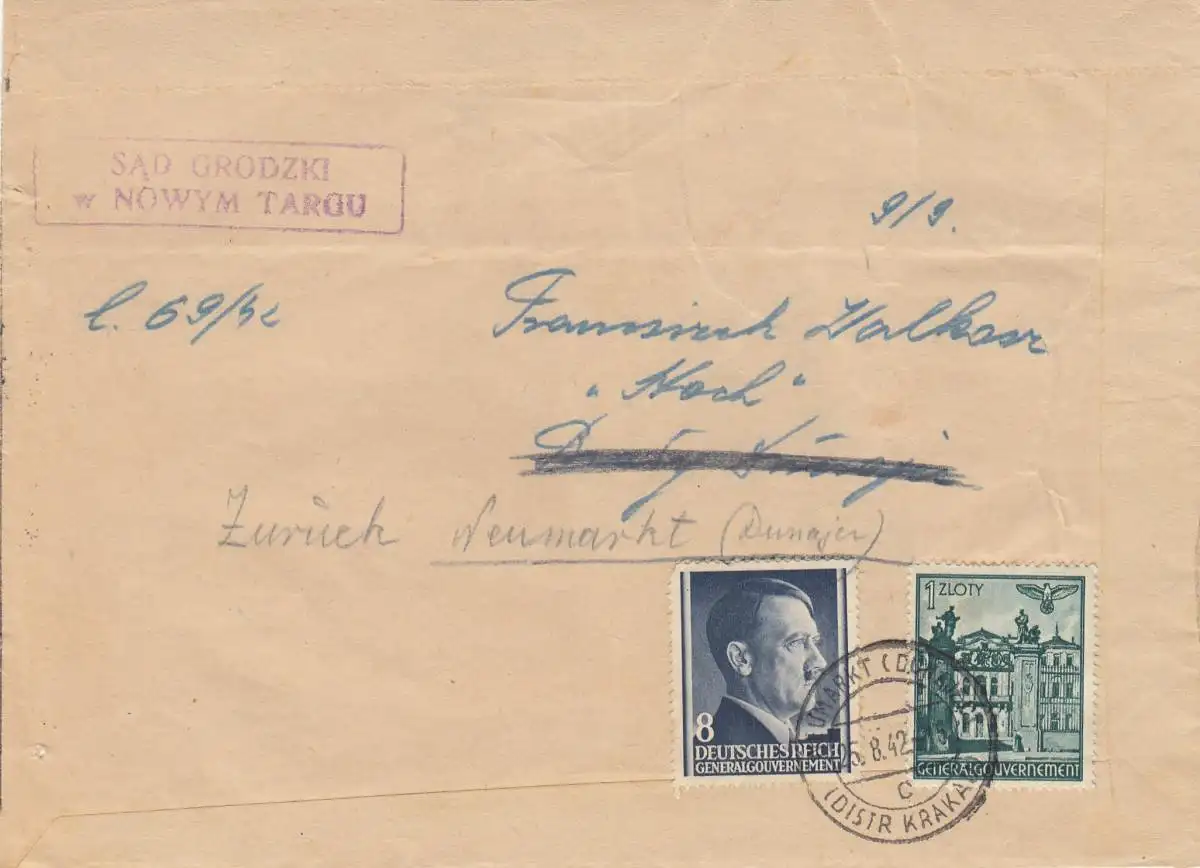 SĄD GRODZKI
w NOWYM TARGU
9/9.
l. 69/42
Franciszek Walkosz
"Stoch"
Zurück Neumarkt (Dunajec)
8
DEUTSCHES REICH
GENERALGOUVERNEMENT
1 ZLOTY
GENERALGOUVERNEMENT
UMARKT (DU
25.8.42
c
(DISTR KRAKAU)